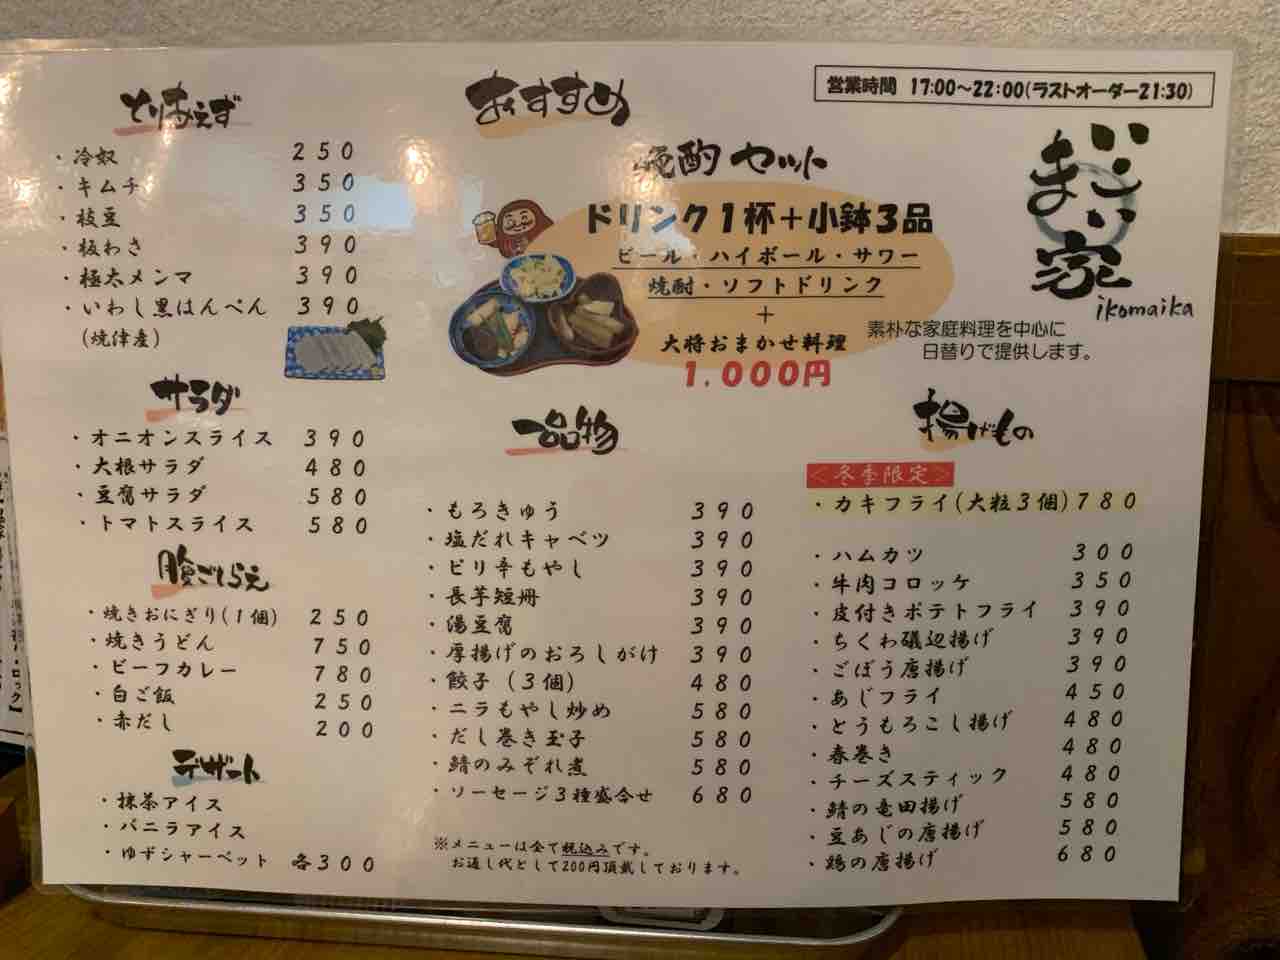 営業時間 17:00~22:00(ラストオーダー21:30)
いこまい家
ikomaika
素朴な家庭料理を中心に
日替りで提供します。
おすすめ
晩酌セット
ドリンク1杯+小鉢3品
ビール・ハイボール・サワー
焼酎・ソフトドリンク
+
大将おまかせ料理
1.000円
とりあえず
・冷奴 250
・キムチ 350
・枝豆 350
・板わさ 390
・極太メンマ 390
・いわし黒はんぺん 390
(焼津産)
サラダ
・オニオンスライス 390
・大根サラダ 480
・豆腐サラダ 580
・トマトスライス 580
腹ごしらえ
・焼きおにぎり(1個) 250
・焼きうどん 750
・ビーフカレー 780
・白ご飯 250
・赤だし 200
デザート
・抹茶アイス
・バニラアイス
・ゆずシャーベット 各300
一品物
・もろきゅう 390
・塩だれキャベツ 390
・ピリ辛もやし 390
・長芋短冊 390
・湯豆腐 390
・厚揚げのおろしがけ 390
・餃子(3個) 480
・ニラもやし炒め 580
・だし巻き玉子 580
・鯖のみぞれ煮 580
・ソーセージ3種盛合せ 680
※メニューは全て税込みです。
お通し代として200円頂戴しております。
揚げもの
<冬季限定>
・カキフライ(大粒3個)780
・ハムカツ 300
・牛肉コロッケ 350
・皮付きポテトフライ 390
・ちくわ磯辺揚げ 390
・ごぼう唐揚げ 390
・あじフライ 450
・とうもろこし揚げ 480
・春巻き 480
・チーズスティック 480
・鯖の竜田揚げ 580
・豆あじの唐揚げ 580
・鶏の唐揚げ 680